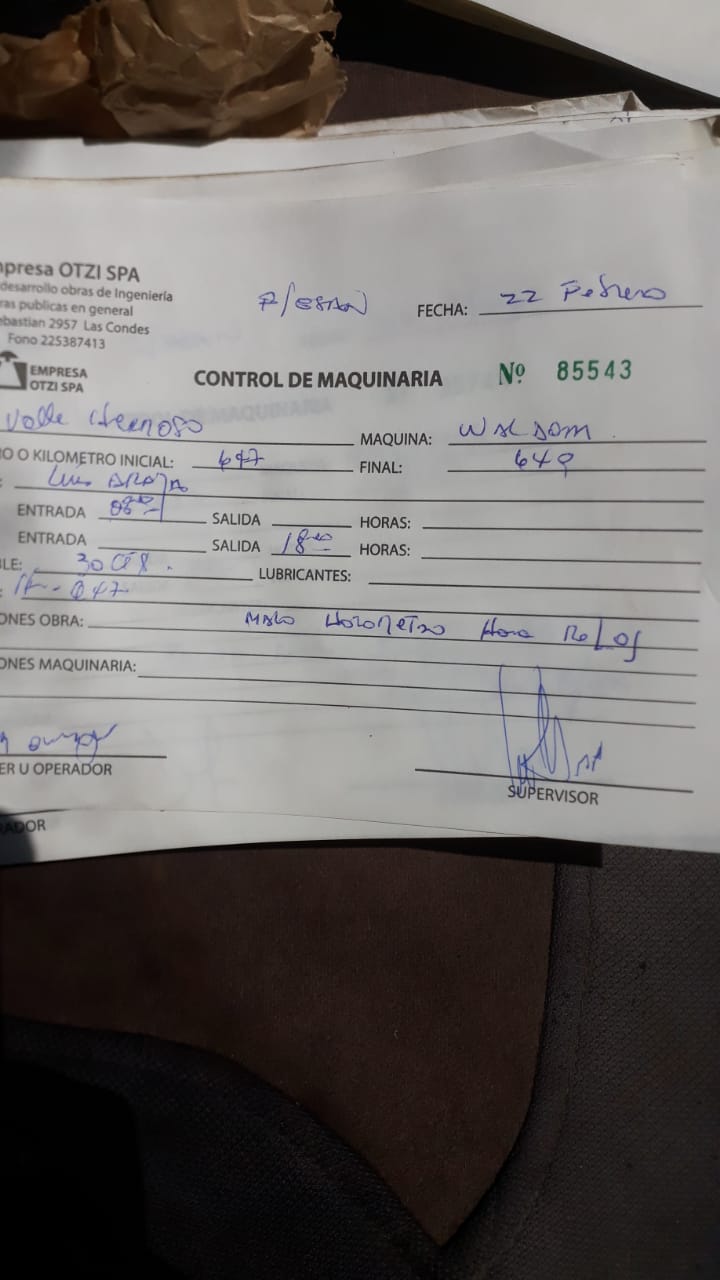 mpresa OTZI SPA
desarrollo obras de Ingeniería
ras publicas en general
ebastian 2957 Las Condes
Fono 225387413
FECHA: 22 Febrero
EMPRESA
OTZI SPA
CONTROL DE MAQUINARIA
Nº 85543
Valle Hermoso
MAQUINA:
IO O KILOMETRO INICIAL: 647
FINAL: 649
: Luis ARAYA
ENTRADA 08:00 SALIDA HORAS:
ENTRADA SALIDA 18:00 HORAS:
LE: 30 LUBRICANTES:
ONES OBRA: MALO HOROMETRO HORA RELOJ
ONES MAQUINARIA:
ER U OPERADOR
SUPERVISOR
RADOR